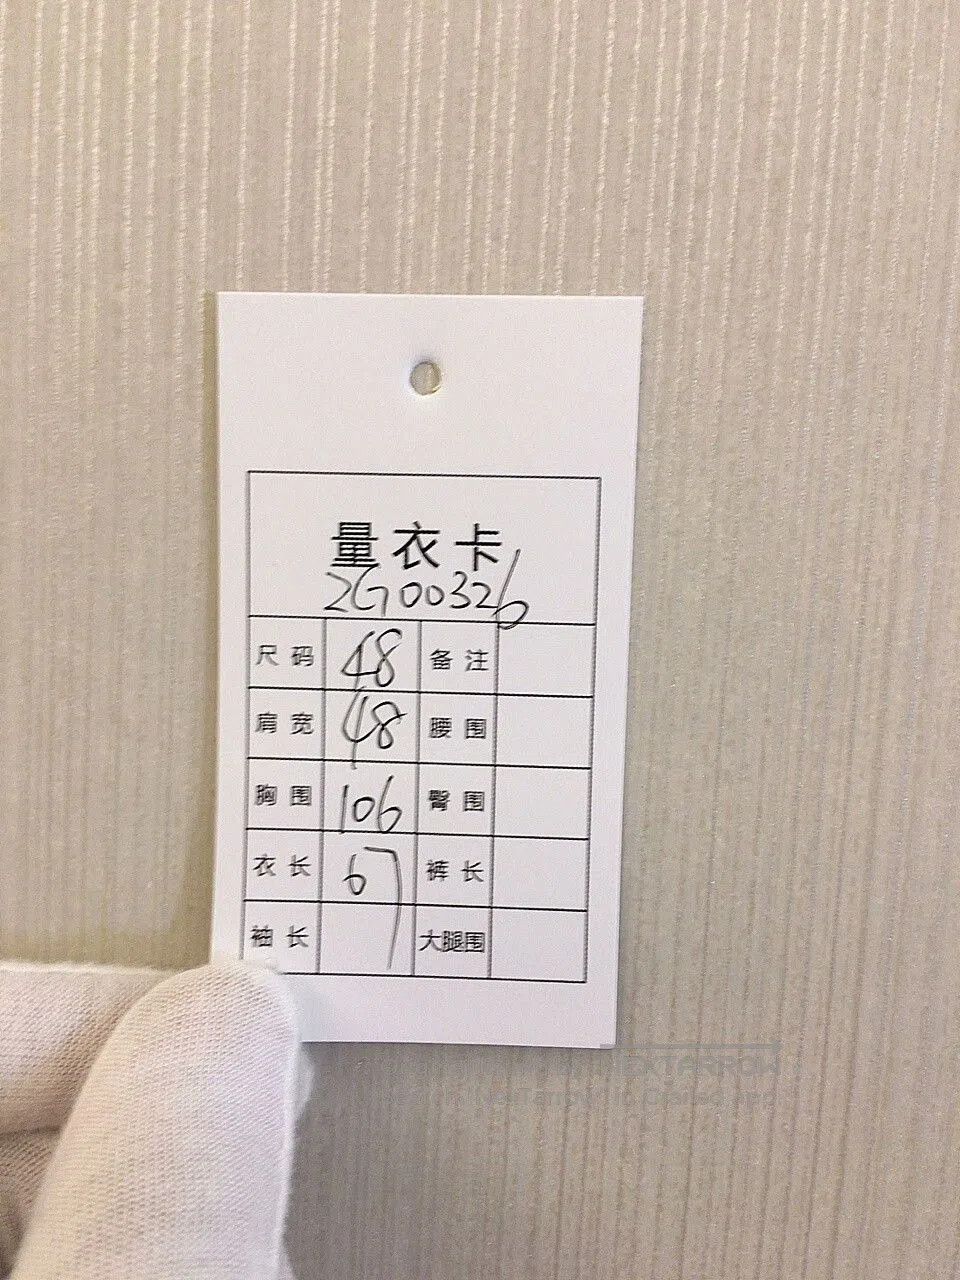 量衣卡
2G00326
尺码 48 备注
肩宽 48 腰围
胸围 106 臀围
衣长 67 裤长
袖长 大腿围
NEXTARROW